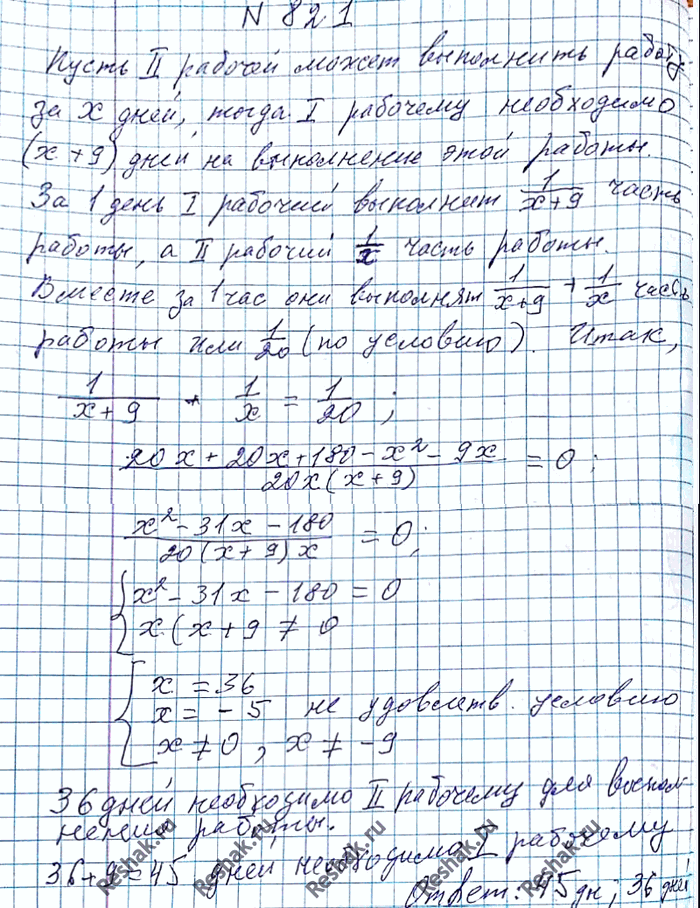 N 821
Пусть II рабочий может выполнить работу
за x дней, тогда I рабочему необходимо
(x+9) дней на выполнение этой работы.
За 1 день I рабочий выполнит 1/(x+9) часть
работы, а II рабочий 1/x часть работы.
Вместе за 1 час они выполнят 1/(x+9) + 1/x часть
работы или 1/20 (по условию). Итак,
1/(x+9) + 1/x = 1/20 ;
(20x + 20x + 180 - x² - 9x)/(20x(x+9)) = 0 ;
(x² - 31x - 180)/(20(x+9)x) = 0 ;
{ x² - 31x - 180 = 0
x (x+9 ≠ 0
[ x = 36
x = -5 не удовлетв. условию
x ≠ 0 , x ≠ -9
36 дней необходимо II рабочему для
работы.
36+9=45 дней необходимо I рабочему
Ответ: 45 дн ; 36 дней
Reshak.ru Reshak.ru Reshak.ru Reshak.ru Reshak.ru